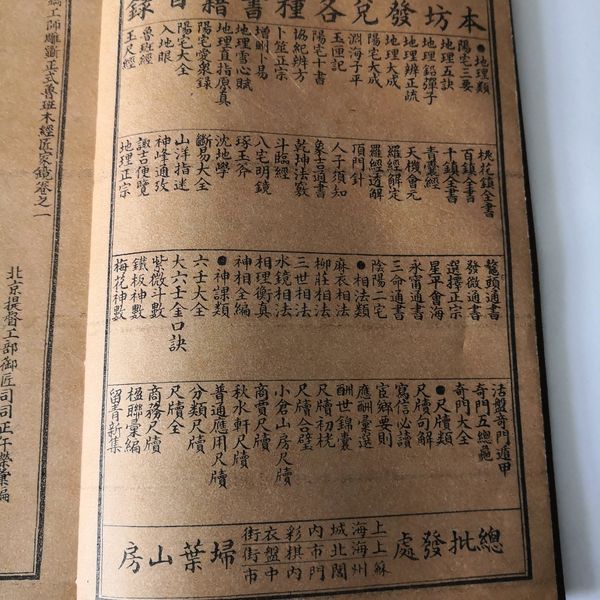 本坊發兌各種書籍目錄
●地理類
陽宅三要
地理五訣
地理鉛彈子
地理辨正疏
地理大成
陽宅大成
淵海子平
玉匣記
陽宅十書
協紀辨方
卜筮正宗
增刪卜易
地理雪心賦
地理直指原真
陽宅愛衆錄
陽宅大全
入地眼
魯班經
玉尺經
桃花鎮全書
百鎮全書
千鎮全書
青囊經
天機會元
羅經解定
羅經透解
頂門針
人子須知
象吉通書
乾坤法竅
斗臨經
八宅明鏡
琢玉斧
沈地學
斷易大全
山洋指迷
神峰通攷
諏吉便覽
地理正宗
鰲頭通書
發微通書
選擇正宗
星平會海
永甯通書
三命通書
陰陽二宅
●相法類
麻衣相法
柳莊相法
水鏡相法
三世相法
相理衡真
神相全編
●神課類
六壬大全
大六壬金口訣
紫微斗數
鐵板神數
梅花神數
活盤奇門遁甲
奇門五總龜
奇門大全
●尺牘類
尺牘句解
寫信必讀
宦鄉要則
應酬彙選
酬世錦囊
尺牘初桄
尺牘合璧
小倉山房尺牘
商賈尺牘
秋水軒尺牘
普通應用尺牘
分類尺牘
尺牘全
商務尺牘
楹聯彙編
留青新集
總批發處
蘇州閶門內中市
上海北市棋盤街
上海城內彩衣街
掃葉山房
工師雕斲正式魯班木經匠家鏡卷之一
北京提督工部御匠司司正午榮彙編